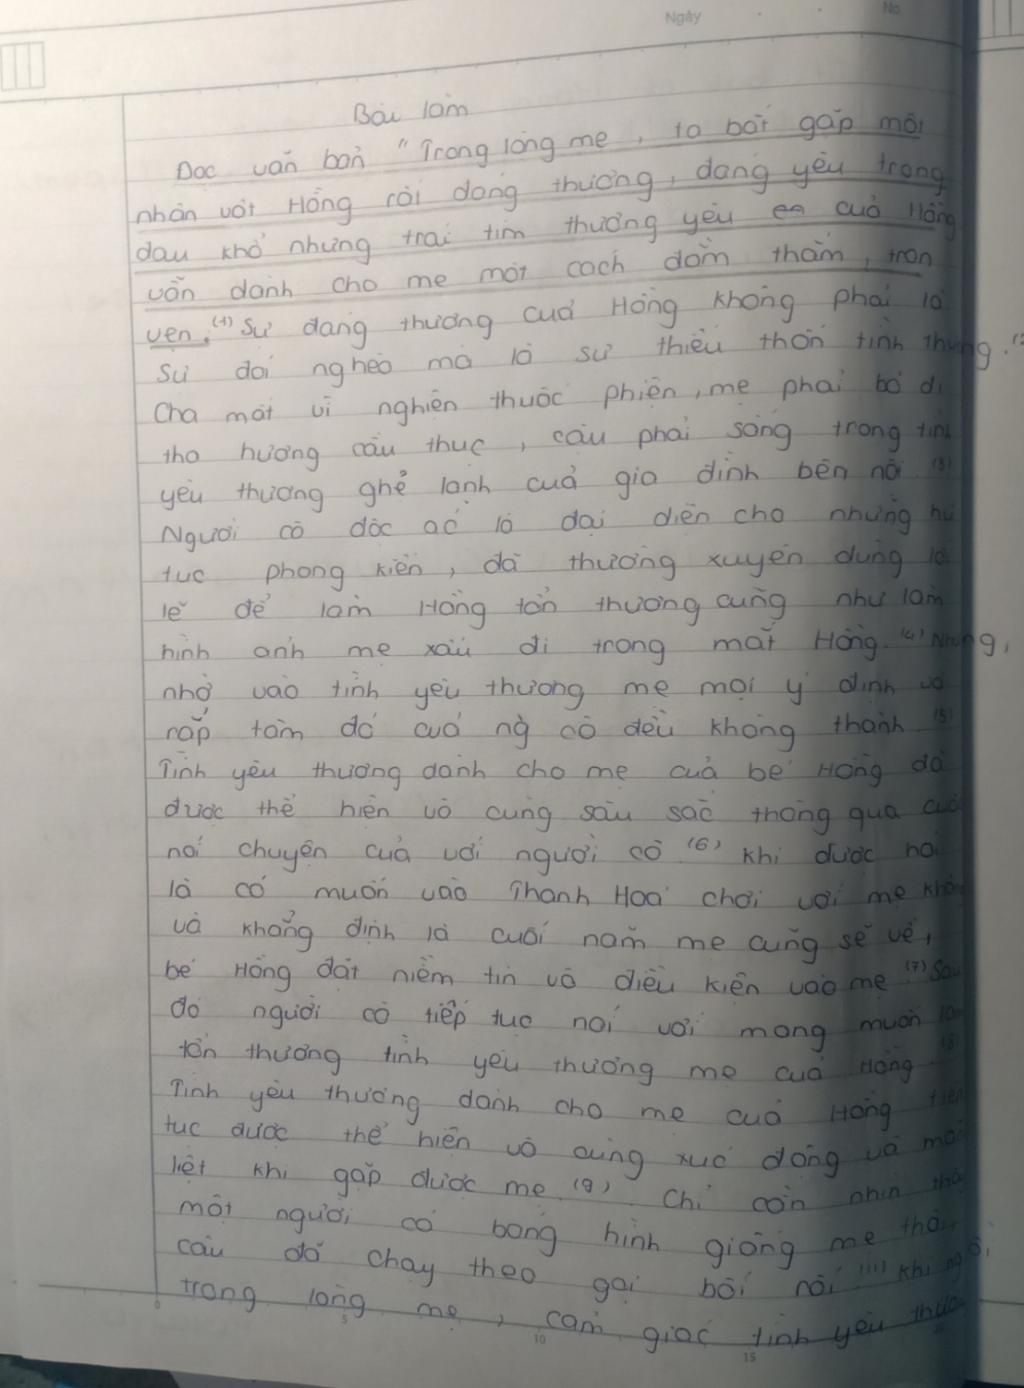 Ngày
No.
Bài làm
Đọc văn bản "Trong lòng mẹ, ta bắt gặp một
nhân vật Hồng rồi đáng thương, đáng yêu trong
đau khổ nhưng trái tim thương yêu của Hồng
vẫn dành cho mẹ một cách đằm thắm, trọn
vẹn.(1) Sự đáng thương của Hồng không phải là
sự đói nghèo mà là sự thiếu thốn tình thương.
Cha mất vì nghiện thuốc phiện, mẹ phải bỏ đi
tha hương cầu thực, cậu phải sống trong tình
yêu thương ghẻ lạnh của gia đình bên nội (3)
Người cô độc ác là đại diện cho những hủ
tục phong kiến, đã thường xuyên dùng lời
lẽ để làm Hồng tổn thương cũng như làm
hình ảnh mẹ xấu đi trong mắt Hồng.(4) Nhưng,
nhờ vào tình yêu thương mẹ mọi ý định và
rắp tâm đó của cô đều không thành (5)
Tình yêu thương dành cho mẹ của bé Hồng đã
được thể hiện vô cùng sâu sắc thông qua cuộc
nói chuyện của với người cô (6) khi được hỏi
là có muốn vào Thanh Hoá chơi với mẹ không
và khẳng định là cuối năm mẹ cũng sẽ về,
bé Hồng đặt niềm tin vô điều kiện vào mẹ (7) Sau
đó người cô tiếp tục nói với mong muốn làm
tổn thương tình yêu thương mẹ của Hồng (8)
Tình yêu thương dành cho mẹ của Hồng tiếp
tục được thể hiện vô cùng xúc động và mãnh
liệt khi gặp được mẹ (9) Chỉ còn nhìn thấy
một người có bóng hình giống mẹ thôi,
cậu đã chạy theo gọi bối rối (11) khi ngồi
trong lòng mẹ, cảm giác tình yêu
0
5
10
15